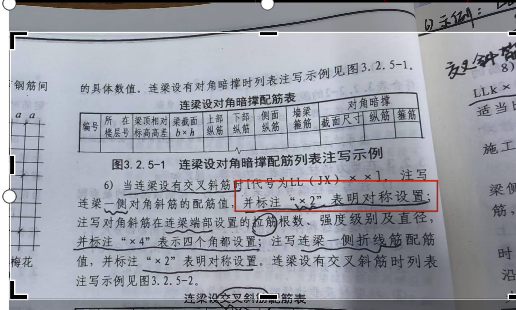 6)示例:
的具体数值。连梁设有对角暗撑时列表注写示例见图3.2.5-1。
连梁设对角暗撑配筋表
编号 所在楼层号 梁顶相对标高高差 梁截面b×h 上部纵筋 下部纵筋 侧面纵筋 墙梁箍筋 对角暗撑
截面尺寸 纵筋 箍筋
图3.2.5-1 连梁设对角暗撑配筋列表注写示例
6)当连梁设有交叉斜筋时[代号为LL(JX)××],注写
连梁一侧对角斜筋的配筋值,并标注“×2”表明对称设置;
注写对角斜筋在连梁端部设置的拉筋根数、强度级别及直径,
并标注“×4”表示四个角都设置;注写连梁一侧折线筋配筋
值,并标注“×2”表明对称设置。连梁设有交叉斜筋时列表
注写示例见图3.2.5-2。
连梁设交叉斜筋配筋表
钢筋间
a a
梅花
交叉斜筋
8)
LLk×
适当
施工
梁侧
筋,
时
沿